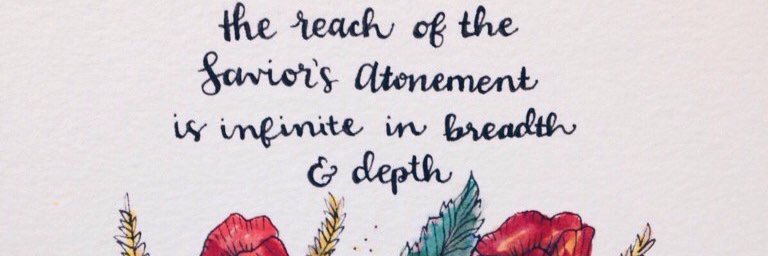 the reach of the
Savior's Atonement
is infinite in breadth
& depth